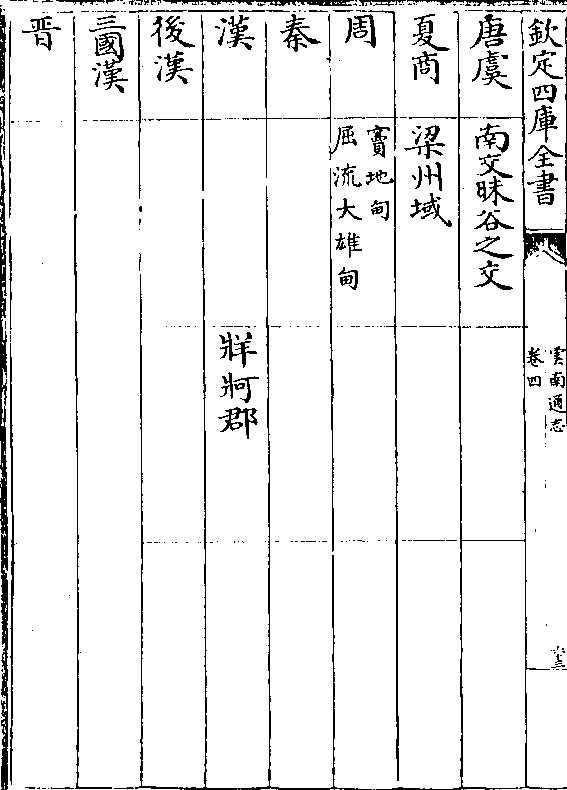 欽定四庫全書
雲南通志
卷四
六十三
唐虞
南交昧谷之交
夏商
梁州域
周
賨地甸
屈流大雄甸
秦
漢
牂牁郡
後漢
三國漢
晉